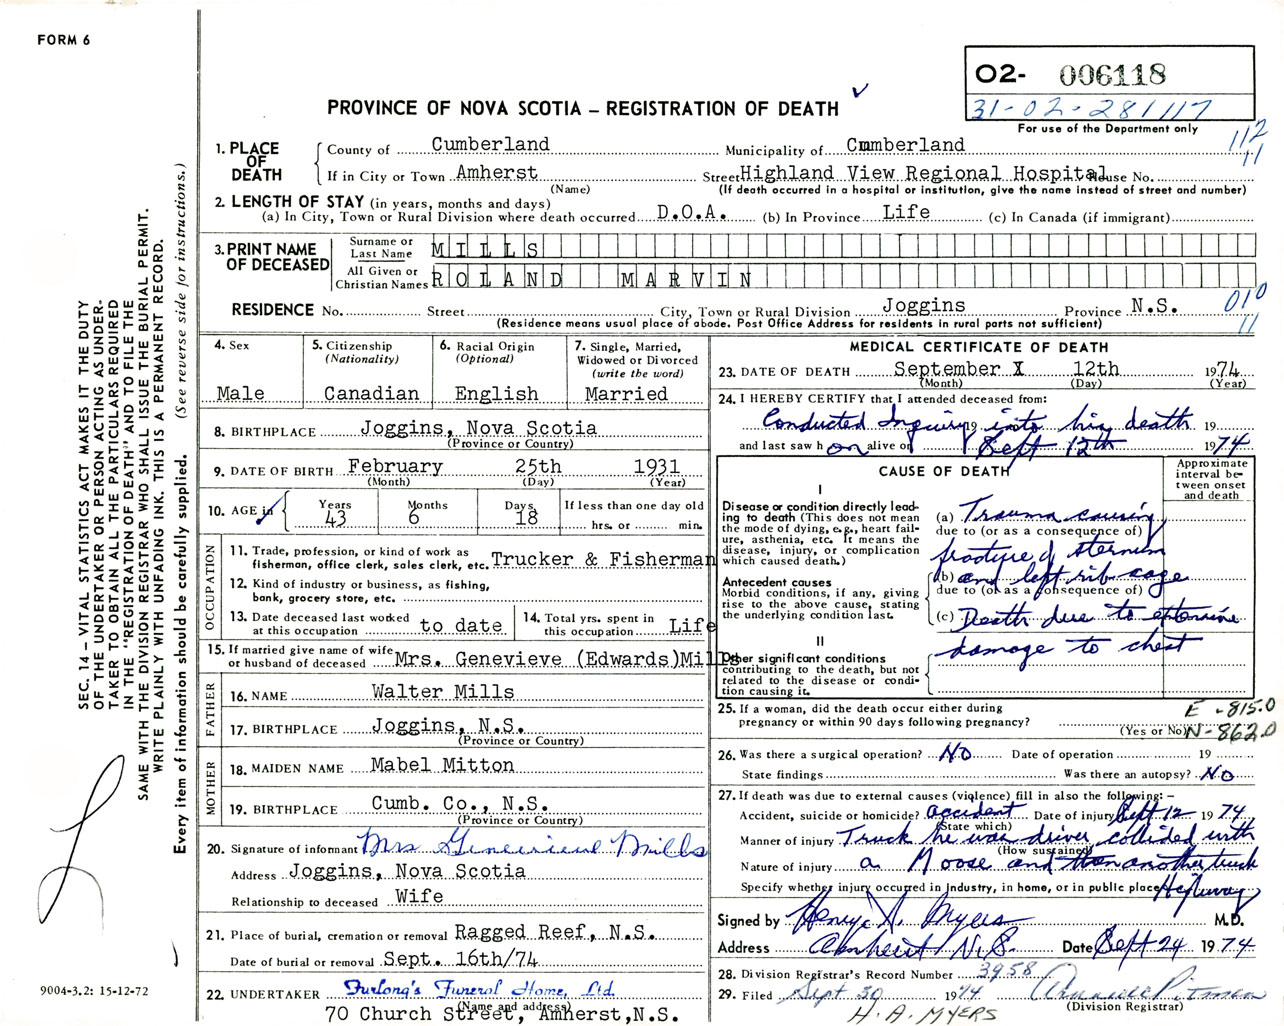 FORM 6
O2- 006118
31-02-281117
For use of the Department only
PROVINCE OF NOVA SCOTIA – REGISTRATION OF DEATH
112
11
1. PLACE OF DEATH
County of Cumberland Municipality of Cumberland
If in City or Town Amherst Street Highland View Regional Hospital House No.
(Name) (If death occurred in a hospital or institution, give the name instead of street and number)
2. LENGTH OF STAY (in years, months and days)
(a) In City, Town or Rural Division where death occurred D.O.A. (b) In Province Life (c) In Canada (if immigrant)
3. PRINT NAME OF DECEASED
Surname or Last Name MILLS
All Given or Christian Names ROLAND MARVIN
RESIDENCE No. Street City, Town or Rural Division Joggins Province N.S.
(Residence means usual place of abode. Post Office Address for residents in rural parts not sufficient)
010
11
4. Sex Male
5. Citizenship (Nationality) Canadian
6. Racial Origin (Optional) English
7. Single, Married, Widowed or Divorced (write the word) Married
8. BIRTHPLACE Joggins, Nova Scotia
(Province or Country)
9. DATE OF BIRTH February 25th 1931
(Month) (Day) (Year)
10. AGE in Years 43 Months 6 Days 18 If less than one day old hrs. or min.
OCCUPATION
11. Trade, profession, or kind of work as fisherman, office clerk, sales clerk, etc. Trucker & Fisherman
12. Kind of industry or business, as fishing, bank, grocery store, etc.
13. Date deceased last worked at this occupation to date
14. Total yrs. spent in this occupation Life
15. If married give name of wife or husband of deceased Mrs. Genevieve (Edwards)Mills
FATHER
16. NAME Walter Mills
17. BIRTHPLACE Joggins, N.S.
(Province or Country)
MOTHER
18. MAIDEN NAME Mabel Mitton
19. BIRTHPLACE Cumb. Co., N.S.
(Province or Country)
20. Signature of informant Mrs Genevieve Mills
Address Joggins, Nova Scotia
Relationship to deceased Wife
21. Place of burial, cremation or removal Ragged Reef, N.S.
Date of burial or removal Sept. 16th/74
22. UNDERTAKER Furlong's Funeral Home, Ltd.
(Name and address)
70 Church Street, Amherst,N.S.
MEDICAL CERTIFICATE OF DEATH
23. DATE OF DEATH September X 12th 1974
(Month) (Day) (Year)
24. I HEREBY CERTIFY that I attended deceased from:
Conducted Inquiry 19 into his death 19
and last saw h on alive on Sept 12th 1974
CAUSE OF DEATH
Approximate interval between onset and death
I
Disease or condition directly leading to death (This does not mean the mode of dying, e.g., heart failure, asthenia, etc. It means the disease, injury, or complication which caused death.)
(a) Trauma causing
due to (or as a consequence of)
fracture of sternum
Antecedent causes
Morbid conditions, if any, giving rise to the above cause, stating the underlying condition last.
(b) and left rib cage
due to (or as a consequence of)
(c) Death due to extensive
damage to chest
II
Other significant conditions
contributing to the death, but not related to the disease or condition causing it.
25. If a woman, did the death occur either during pregnancy or within 90 days following pregnancy?
(Yes or No)
E -815.0
N-862.0
26. Was there a surgical operation? No Date of operation 19
State findings Was there an autopsy? No
27. If death was due to external causes (violence) fill in also the following:–
Accident, suicide or homicide? accident Date of injury Sept 12 1974
(State which)
Manner of injury Truck he was driver collided with
(How sustained)
Nature of injury a Moose and then another truck
Specify whether injury occurred in industry, in home, or in public place Highway
Signed by Henry A. Myers M.D.
Address Amherst N.S. Date Sept 24 1974
28. Division Registrar's Record Number 3958
29. Filed Sept 30 1974
(Division Registrar)
H. A. MYERS
SEC. 14 – VITAL STATISTICS ACT MAKES IT THE DUTY
OF THE UNDERTAKER OR PERSON ACTING AS UNDER-
TAKER TO OBTAIN ALL THE PARTICULARS REQUIRED
IN THE "REGISTRATION OF DEATH" AND TO FILE THE
SAME WITH THE DIVISION REGISTRAR WHO SHALL ISSUE THE BURIAL PERMIT.
WRITE PLAINLY WITH UNFADING INK. THIS IS A PERMANENT RECORD.
Every item of information should be carefully supplied. (See reverse side for instructions.)
9004-3.2: 15-12-72